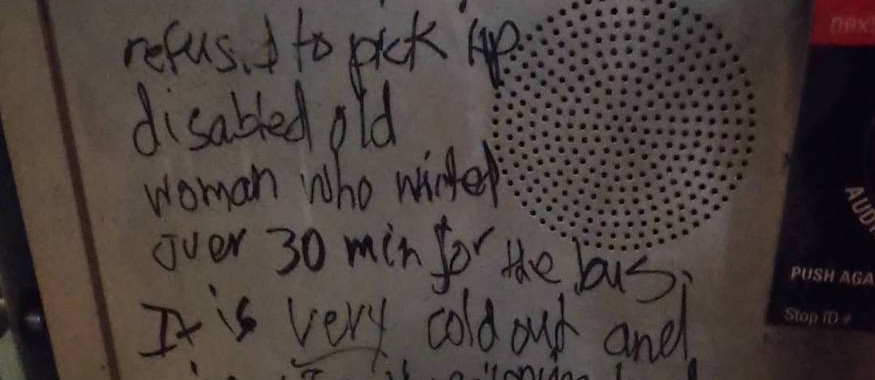 refused to pick up
disabled old
woman who waited
over 30 min for the bus.
It is very cold out and
next
AUD
PUSH AGA
Stop ID #